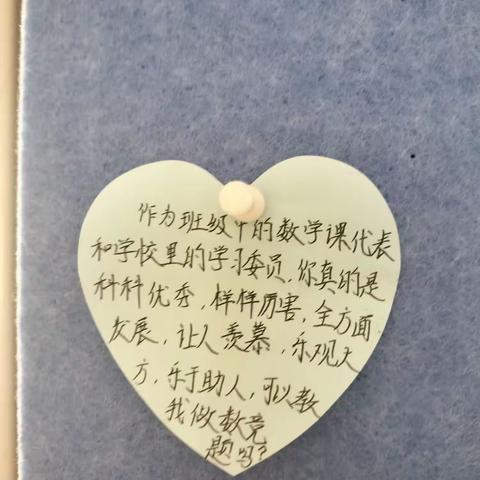 作为班级中的数学课代表
和学校里的学习委员,你真的是
科科优秀,样样厉害,全方面
发展,让人羡慕,乐观大
方,乐于助人,可以教
我做数竞
题吗?